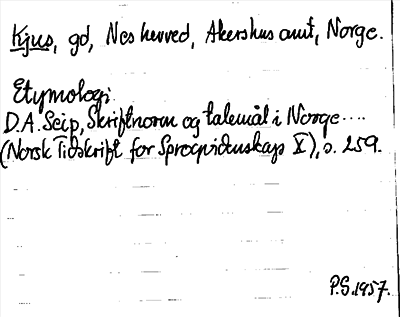 Kjus, gd, Nes herred, Akershus amt, Norge.
Etymologi:
D.A. Seip, Skriftnorm og talemål i Norge....
(Norsk Tidskrift for Sprogvidenskap X), s. 259.
P.S. 1957.